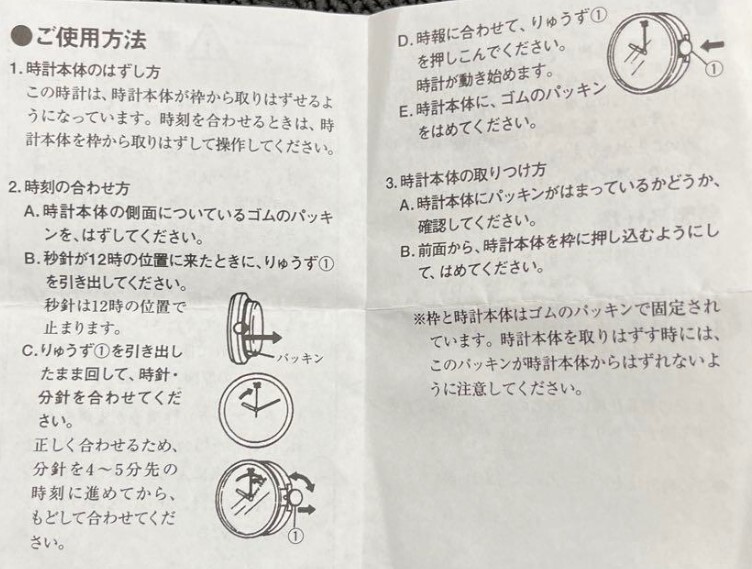 ●ご使用方法
1. 時計本体のはずし方
この時計は、時計本体が枠から取りはずせるよ
うになっています。時刻を合わせるときは、時
計本体を枠から取りはずして操作してください。
2. 時刻の合わせ方
A. 時計本体の側面についているゴムのパッキ
ンを、はずしてください。
B. 秒針が12時の位置に来たときに、りゅうず①
を引き出してください。
秒針は12時の位置で
止まります。
パッキン
C. りゅうず①を引き出し
たまま回して、時針・
分針を合わせてくだ
さい。
正しく合わせるため、
分針を4〜5分先の
時刻に進めてから、
もどして合わせてくだ
さい。
①
D. 時報に合わせて、りゅうず①
を押しこんでください。
時計が動き始めます。
①
E. 時計本体に、ゴムのパッキン
をはめてください。
3. 時計本体の取りつけ方
A. 時計本体にパッキンがはまっているかどうか、
確認してください。
B. 前面から、時計本体を枠に押し込むようにし
て、はめてください。
※枠と時計本体はゴムのパッキンで固定され
ています。時計本体を取りはずす時には、
このパッキンが時計本体からはずれないよ
うに注意してください。